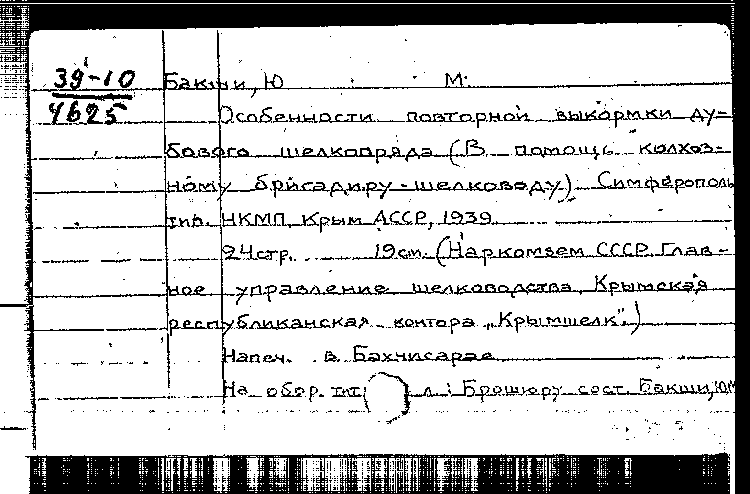 39-10
4625
Бакши, Ю М.
Особенности повторной выкормки ду-
бового шелкопряда (В помощь колхоз-
ному бригадиру-шелководу). Симферополь
тип. НКМП Крым АССР, 1939
24стр. 19см. (Наркомзем СССР. Глав-
ное управление шелководства. Крымская
республиканская контора „Крымшелк".)
Напеч. в Бахчисарае
На обор. тит л.: Брошюру сост. Бакши, Ю.М